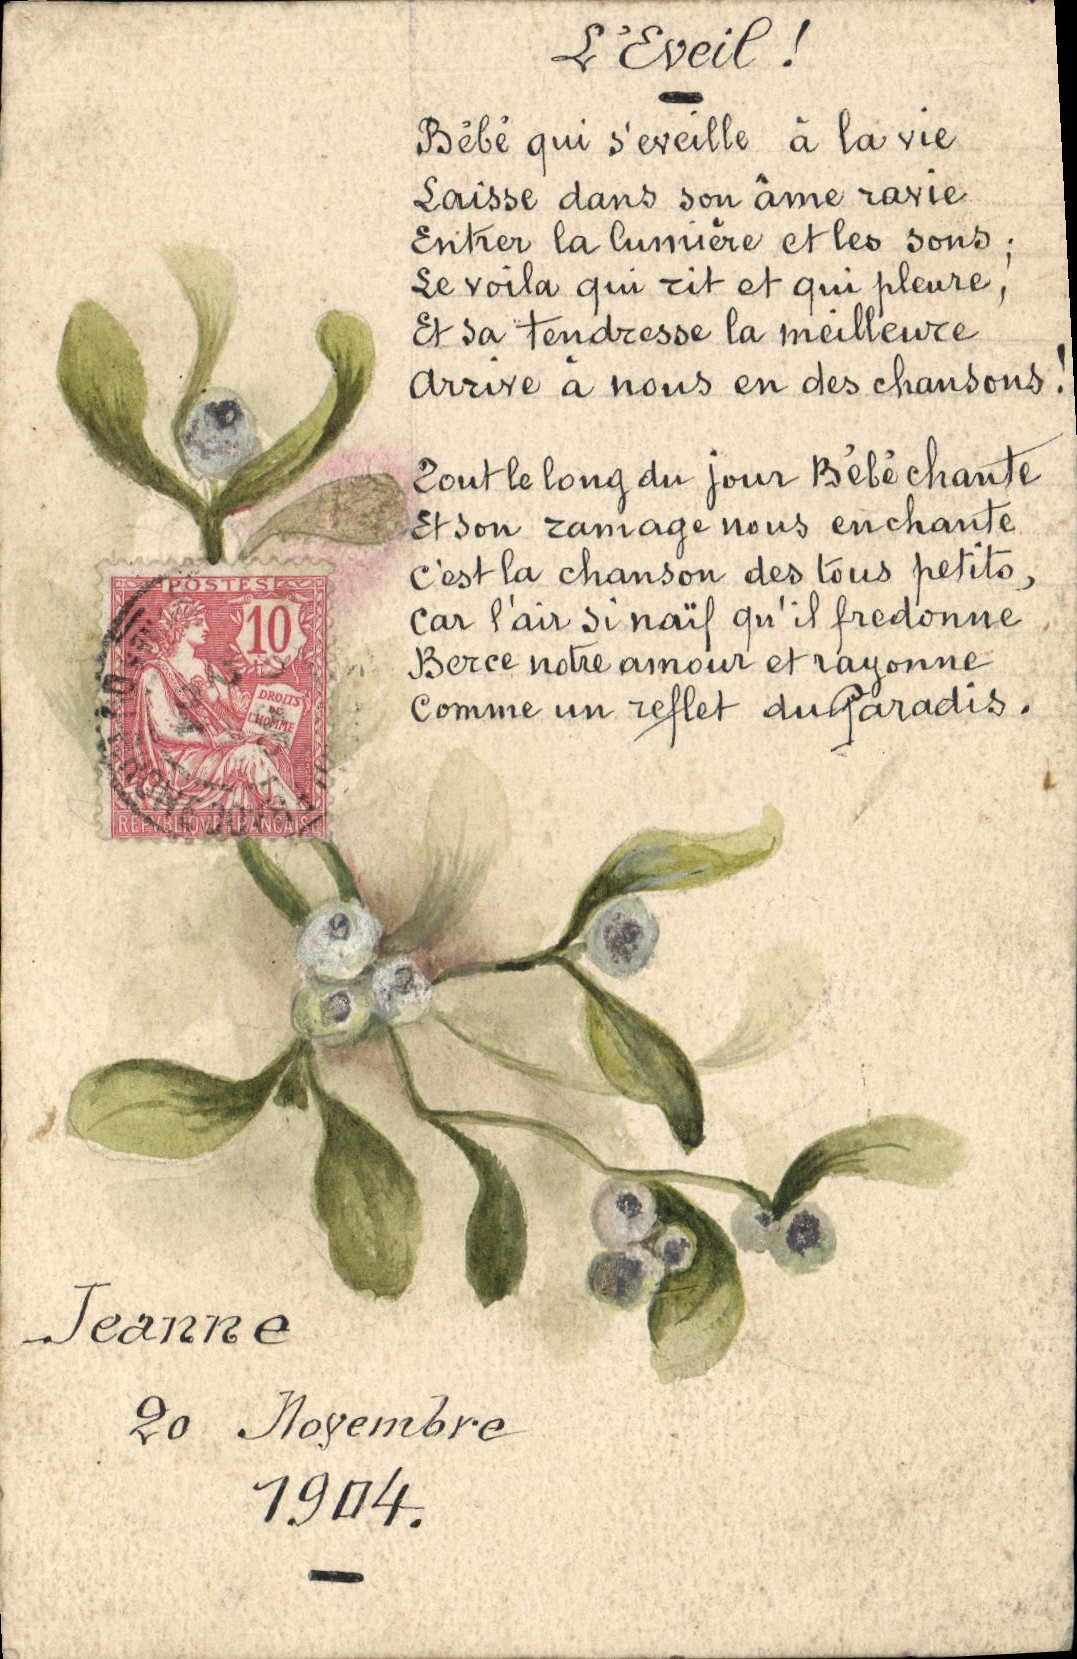 L'Eveil !
Bébé qui s'eveille à la vie
Laisse dans son âme ravie
Entrer la lumière et les sons ;
Le voila qui rit et qui pleure,
Et sa tendresse la meilleure
Arrive à nous en des chansons !
Tout le long du jour Bébé chante
Et son ramage nous enchante
C'est la chanson des tous petits,
Car l'air si naïf qu'il fredonne
Berce notre amour et rayonne
Comme un reflet du Paradis.
POSTES
10
DROITS
DE
L'HOMME
REPVBLIQVE FRANCAISE
Jeanne
20 Novembre
1904.